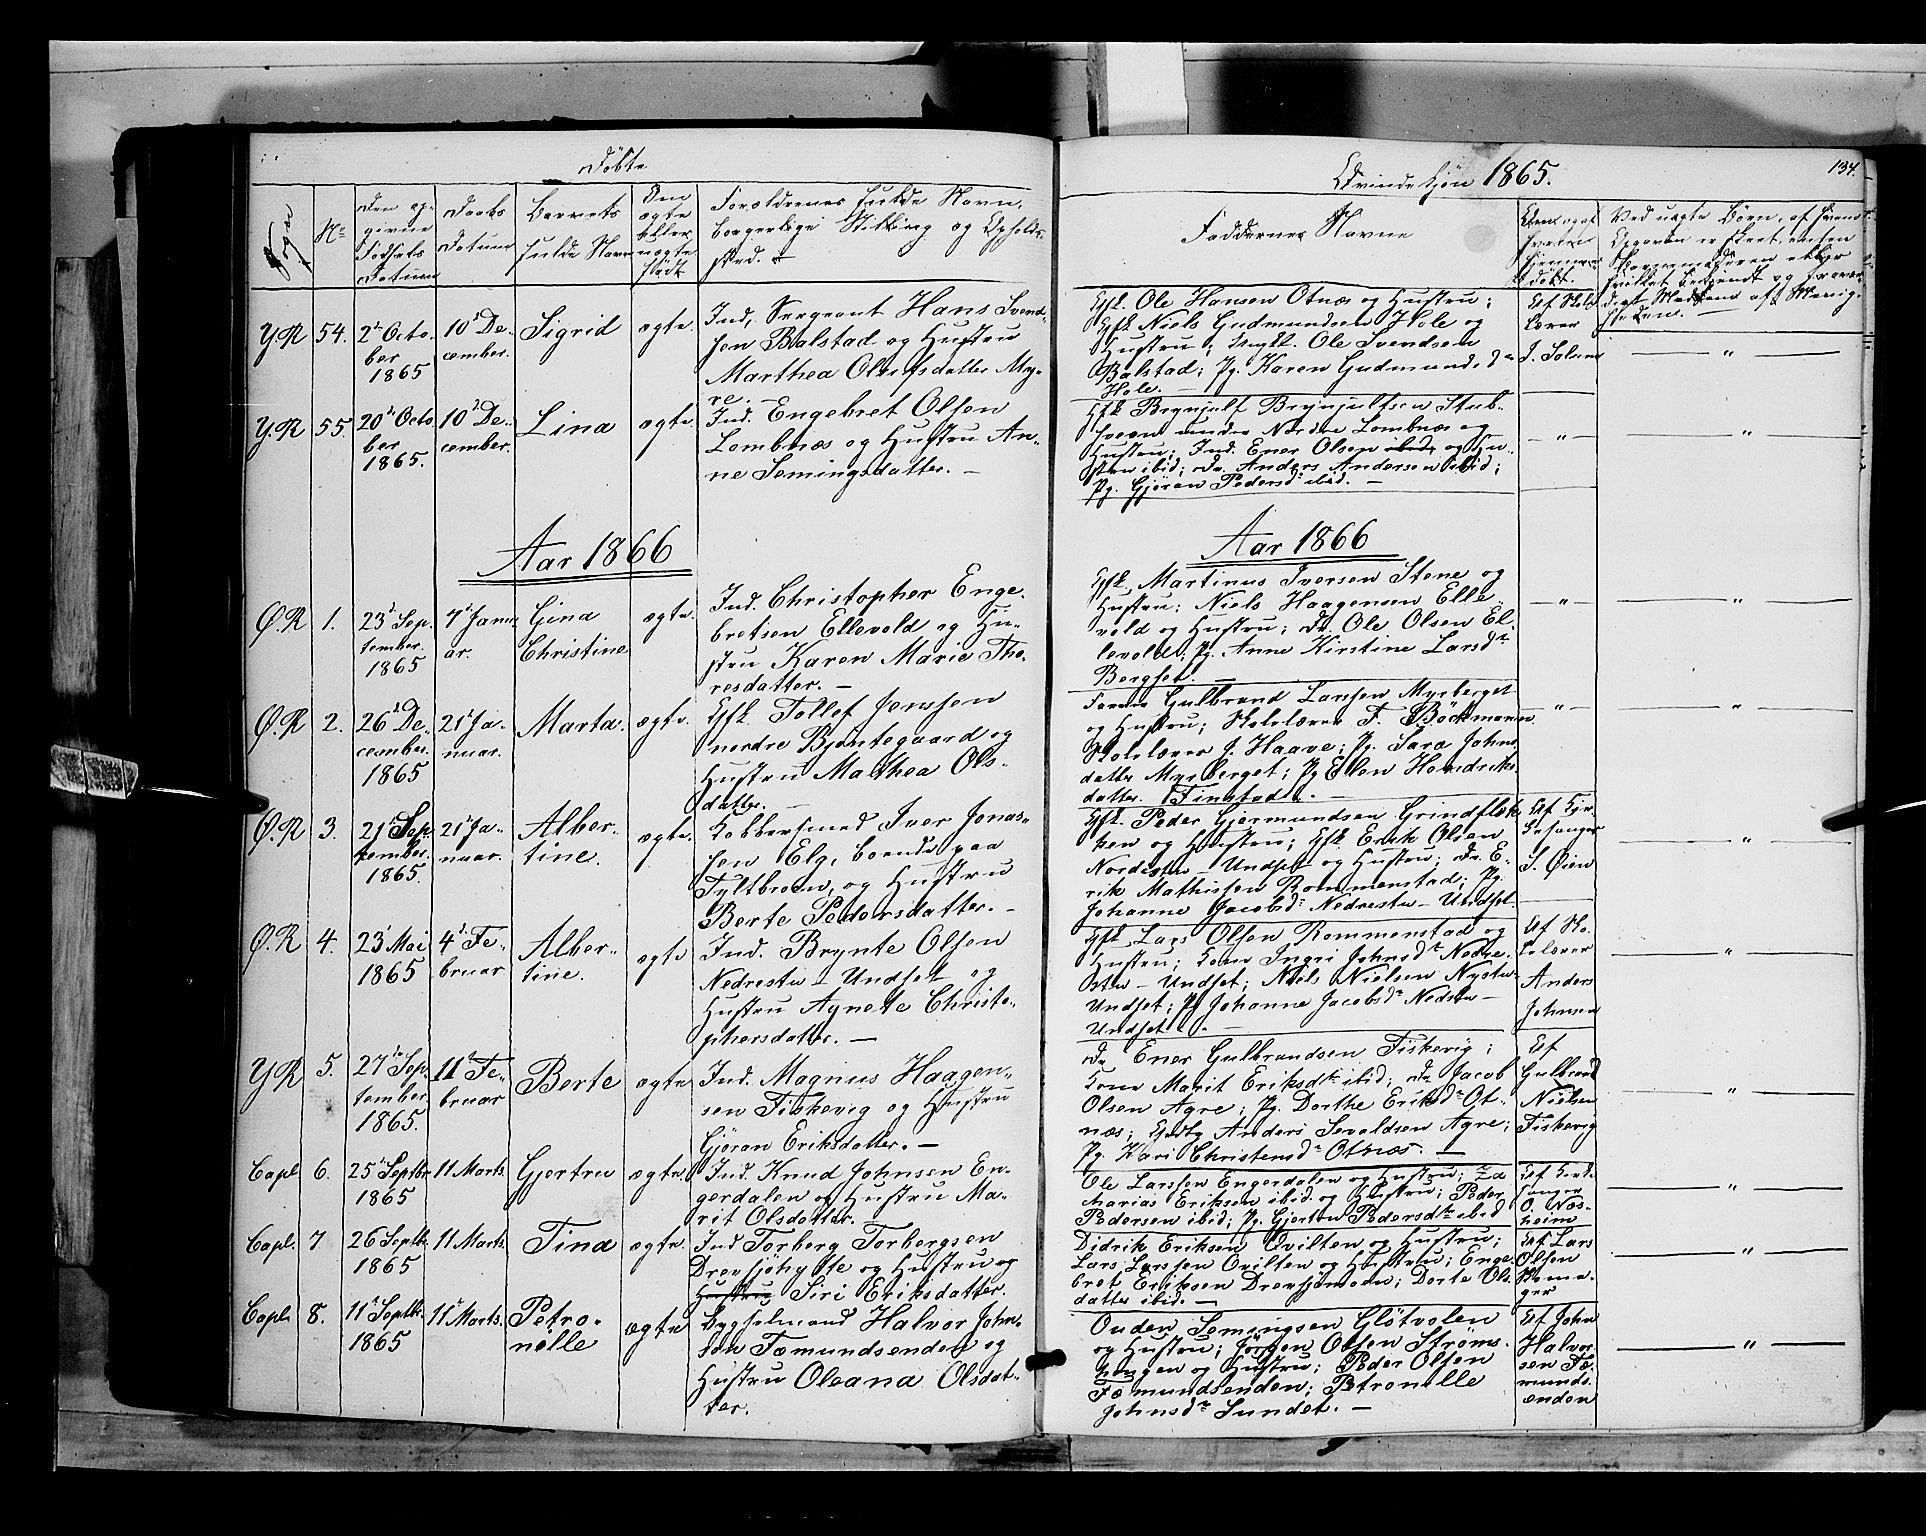 Döbte
Qvindekjön 1865.
134.
Sogn
No
Den op-
givne
Födsels
Datum
Daabs
Datum
Barnets
fulde Navn
Om
ægte
eller
uægte
födt
Forældrenes fulde Navn,
borgerlige Stilling og Opholds-
sted.
Faddernes Navne
Y.R 54. 2den Octo-
ber
1865
10de De-
cember.
Sigrid
ægte.
Ind. Sergeant Hans Svend-
sen Balstad og Hustru
Marthea Olufsdatter My-
re.
Gfk. Ole Hansen Otnæs og Hustru;
Gfk Niels Gudmundsen Hole og
Hustru; Ungk. Ole Svendsen
Balstad; Pg. Karen Gudmundsd.
Hole. —
Af Skole
Lærer
J. Solum
— " —
Y.R 55. 20de Octo
ber
1865.
10de De-
cember.
Lina
ægte.
Ind. Engebret Olsen
Lombnæs og Hustru An-
ne Semingsdatter. —
Gfk Brynjulf Brynjulfsen Stub-
sveen under Nordre Lombnæs og
Hustru; Ind. Ener Olsen ibid; og Hu-
stru ibid; Dr. Anders Andersen ibid;
Pg. Gjöran Pedersd. ibid. —
— " —
— " —
Aar 1866
Aar 1866
Ø.R 1. 23de Sep-
tember.
1865
7de Janu-
ar.
Gina
Christine
ægte.
Ind. Christopher Enge-
bretsen Ellevold og Hu-
stru Karen Marie Tho-
resdatter. —
Gfk. Martinus Iversen Stene og
Hustru; Niels Haagensen Elle-
vold og Hustru; Dr. Ole Olsen El-
levold; Pg. Anne Kirstine Larsdr
Bergset. —
— " —
— " —
Ø.R 2. 26de De-
cember.
1865
21de Ja-
nuar.
Marta.
ægte.
Gfk Tollef Jenssen
nordre Bjøntegaard og
Hustru Mathea Ols-
datter. —
Forme Gulbrand Larssen Myrberget
og Hustru; Skolelærer F. Böckmann
Skolelærer J. Haave; Pg. Sara Johns-
datter Myrberget; Pg Ellen Hendriks-
datter Finstad. —
— " —
— " —
Ø.R 3. 21de Sep-
tember.
1865.
21de Ja-
nuar.
Alber-
tine.
ægte.
Kobbersmed Iver Jonas-
sen Elg, boende paa
Tyltbroen, og Hustru
Berte Pedersdatter. —
Gfk. Peder Gjermundsen Grindflek-
ken og Hustru; Gfk Erik Olsen
Nordistu - Undset og Hustru; Dr. E-
rik Mathissen Rommenstad; Pg.
Johanne Jacobsd. Nedrestu - Undset.
Af Kir-
kesanger
S. Øien
— " —
Ø.R 4. 23de Mai
1865
4de Fe-
bruar
Alber-
tine.
ægte
Ind. Brynte Olsen
Nedrestu - Undset og
Hustru Agnete Christo-
phersdatter. —
Gfk Lars Olsen Rommenstad og
Hustru; Kone Ingri Johnsdr Nedre-
stu - Undset; Niels Nielsen Nystu-
Undset; Pg Johanne Jacobsdr Nedstu -
Undset. —
Af Sko-
lelærer
Anders
Johnsen
— " —
Y.R 5. 27de Sep-
tember
1865.
11te Fe-
bruar
Berte
ægte
Ind. Magnus Haagen-
sen Fiskevig og Hustru
Gjöran Eriksdatter. —
Dr Ener Gulbrandsen Fiskevig;
Kone Marit Eriksdr ibid; Dr Jacob
Olsen Agre; Pg. Dorthe Eriksdr Ot-
næs; Anders Sevaldsen Agre;
Pg. Kari Christensdr Otnæs. —
Af
Gulbrand
Nielsen
Fiskevig
— " —
Capl. 6. 25de Septbr
1865
11 Marts.
Gjertru
ægte
Ind. Knud Johnsen En-
gerdalen og Hustru Ma-
rit Olsdatter.
Ole Larssen Engerdalen og Hustru; Za-
karias Eriksen ibid. og Hustru; Peder
Pedersen ibid; Pg. Gjertru Pedersdr ibid
Af Kirke-
sanger
O. Næs-
heim
— " —
Capl. 7 26 Septbr.
1865
11 Marts.
Tina
ægte.
Ind Torberg Torbergsen
Drevsjöhytte og Hustru og
Hustru Siri Eriksdatter.
Didrik Eriksen Qvilten og Hustru;
Lars Larssen Qvilten og Hustru; Enge-
bret Eriksen Drevsjömoen; Dorte Ols-
datter ibid. —
Af Lars
Olsen
— " —
Capl. 8. 11te Septbr.
1865
11te Marts.
Petro-
nelle
ægte
Bygselmand Halvor John-
sen Fæmundsenden og
Hustru Oleana Olsdat-
ter.
Ouden Semingsen Glötvolen
og Hustru; Jörgen Olsen Ströms-
hengen og Hustru; Peder Olsen
Fæmundsenden; Petronelle
Johnsdr Sundet. —
Af John
Halvor-
sen Fæ-
munds-
enden
— " —